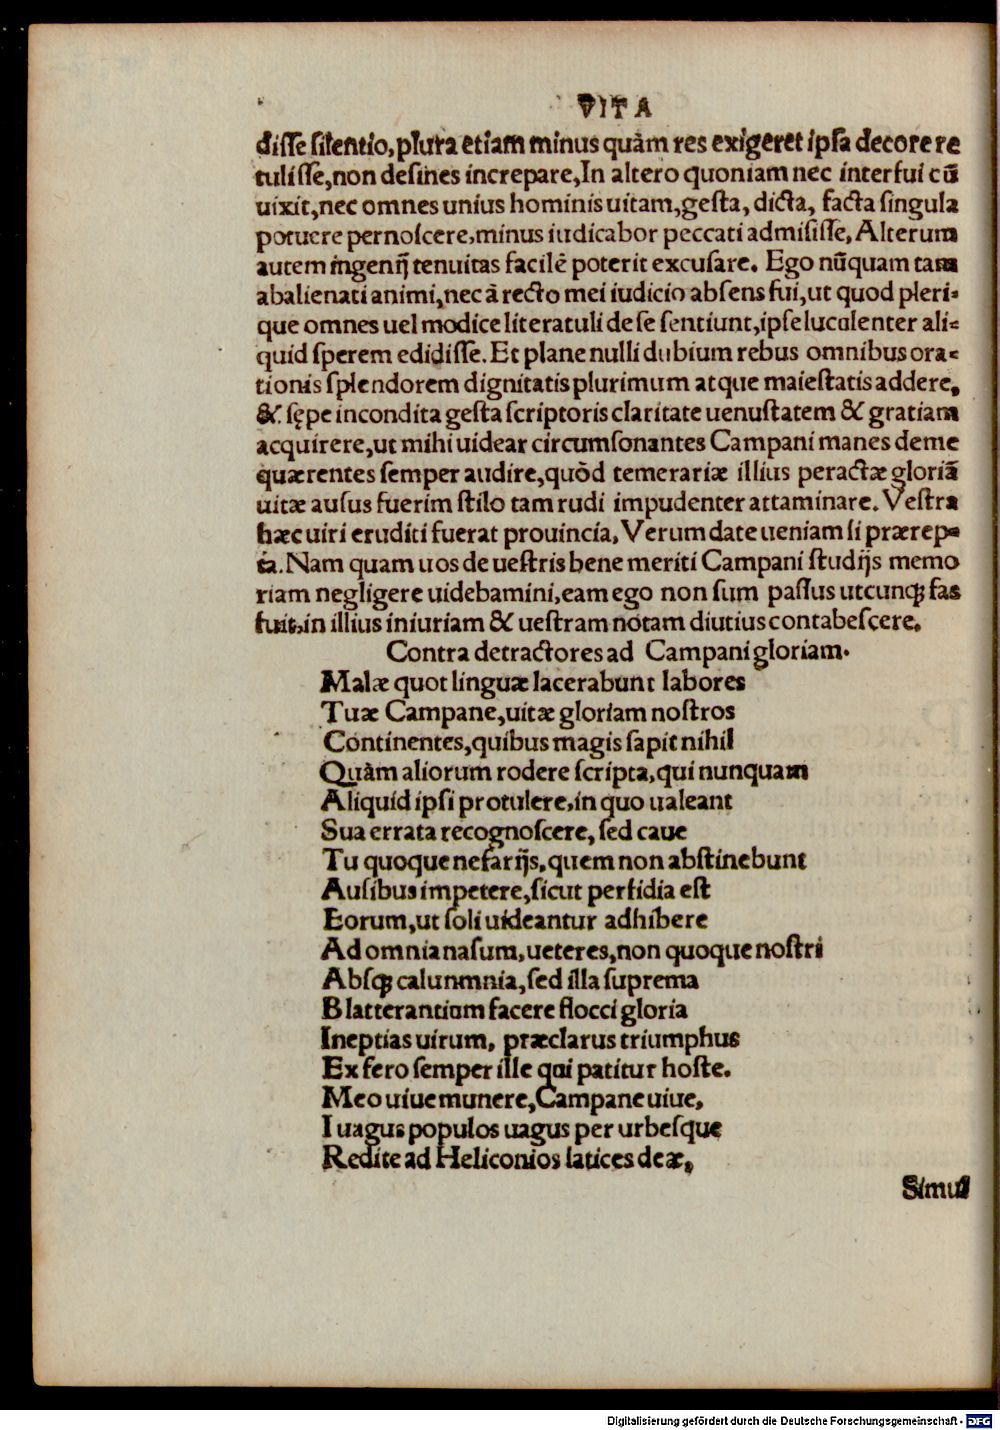 VITA
disse silentio, plura etiam minus quàm res exigeret ipsa decore re
tulisse, non desines increpare, In altero quoniam nec interfui cū
uixit, nec omnes unius hominis uitam, gesta, dicta, facta singula
potuere pernoscere, minus iudicabor peccati admisisse, Alterum
autem ingenij tenuitas facilè poterit excusare. Ego nūquam tam
abalienati animi, nec à recto mei iudicio absens fui, ut quod pleri-
que omnes uel modice literatuli de se sentiunt, ipse luculenter ali-
quid sperem edidisse. Et plane nulli dubium rebus omnibus ora-
tionis splendorem dignitatis plurimum atque maiestatis addere,
& sępe incondita gesta scriptoris claritate uenustatem & gratiam
acquirere, ut mihi uidear circumsonantes Campani manes deme
quærentes semper audire, quōd temerariæ illius peractæ gloriā
uitæ ausus fuerim stilo tam rudi impudenter attaminare. Vestra
hæc uiri eruditi fuerat prouincia, Verum date ueniam si prærep-
ta. Nam quam uos de uestris bene meriti Campani studijs memo
riam negligere uidebamini, eam ego non sum passus utcunqꝫ fas
fuit, in illius iniuriam & uestram notam diutius contabescere.
Contra detractores ad Campani gloriam.
Malæ quot linguæ lacerabunt labores
Tuæ Campane, uitæ gloriam nostros
Continentes, quibus magis sapit nihil
Quàm aliorum rodere scripta, qui nunquam
Aliquid ipsi protulere, in quo ualeant
Sua errata recognoscere, sed caue
Tu quoque nefarijs, quem non abstinebunt
Ausibus impetere, sicut perfidia est
Eorum, ut soli uideantur adhibere
Ad omnia nasum, ueteres, non quoque nostri
Absqꝫ calunmnia, sed illa suprema
Blatterantium facere flocci gloria
Ineptias uirum, præclarus triumphus
Ex fero semper ille qui patitur hoste.
Meo uiue munere, Campane uiue,
I uagus populos uagus per urbesque
Redite ad Heliconios latices deæ,
Simul
Digitalisierung gefördert durch die Deutsche Forschungsgemeinschaft - DFG